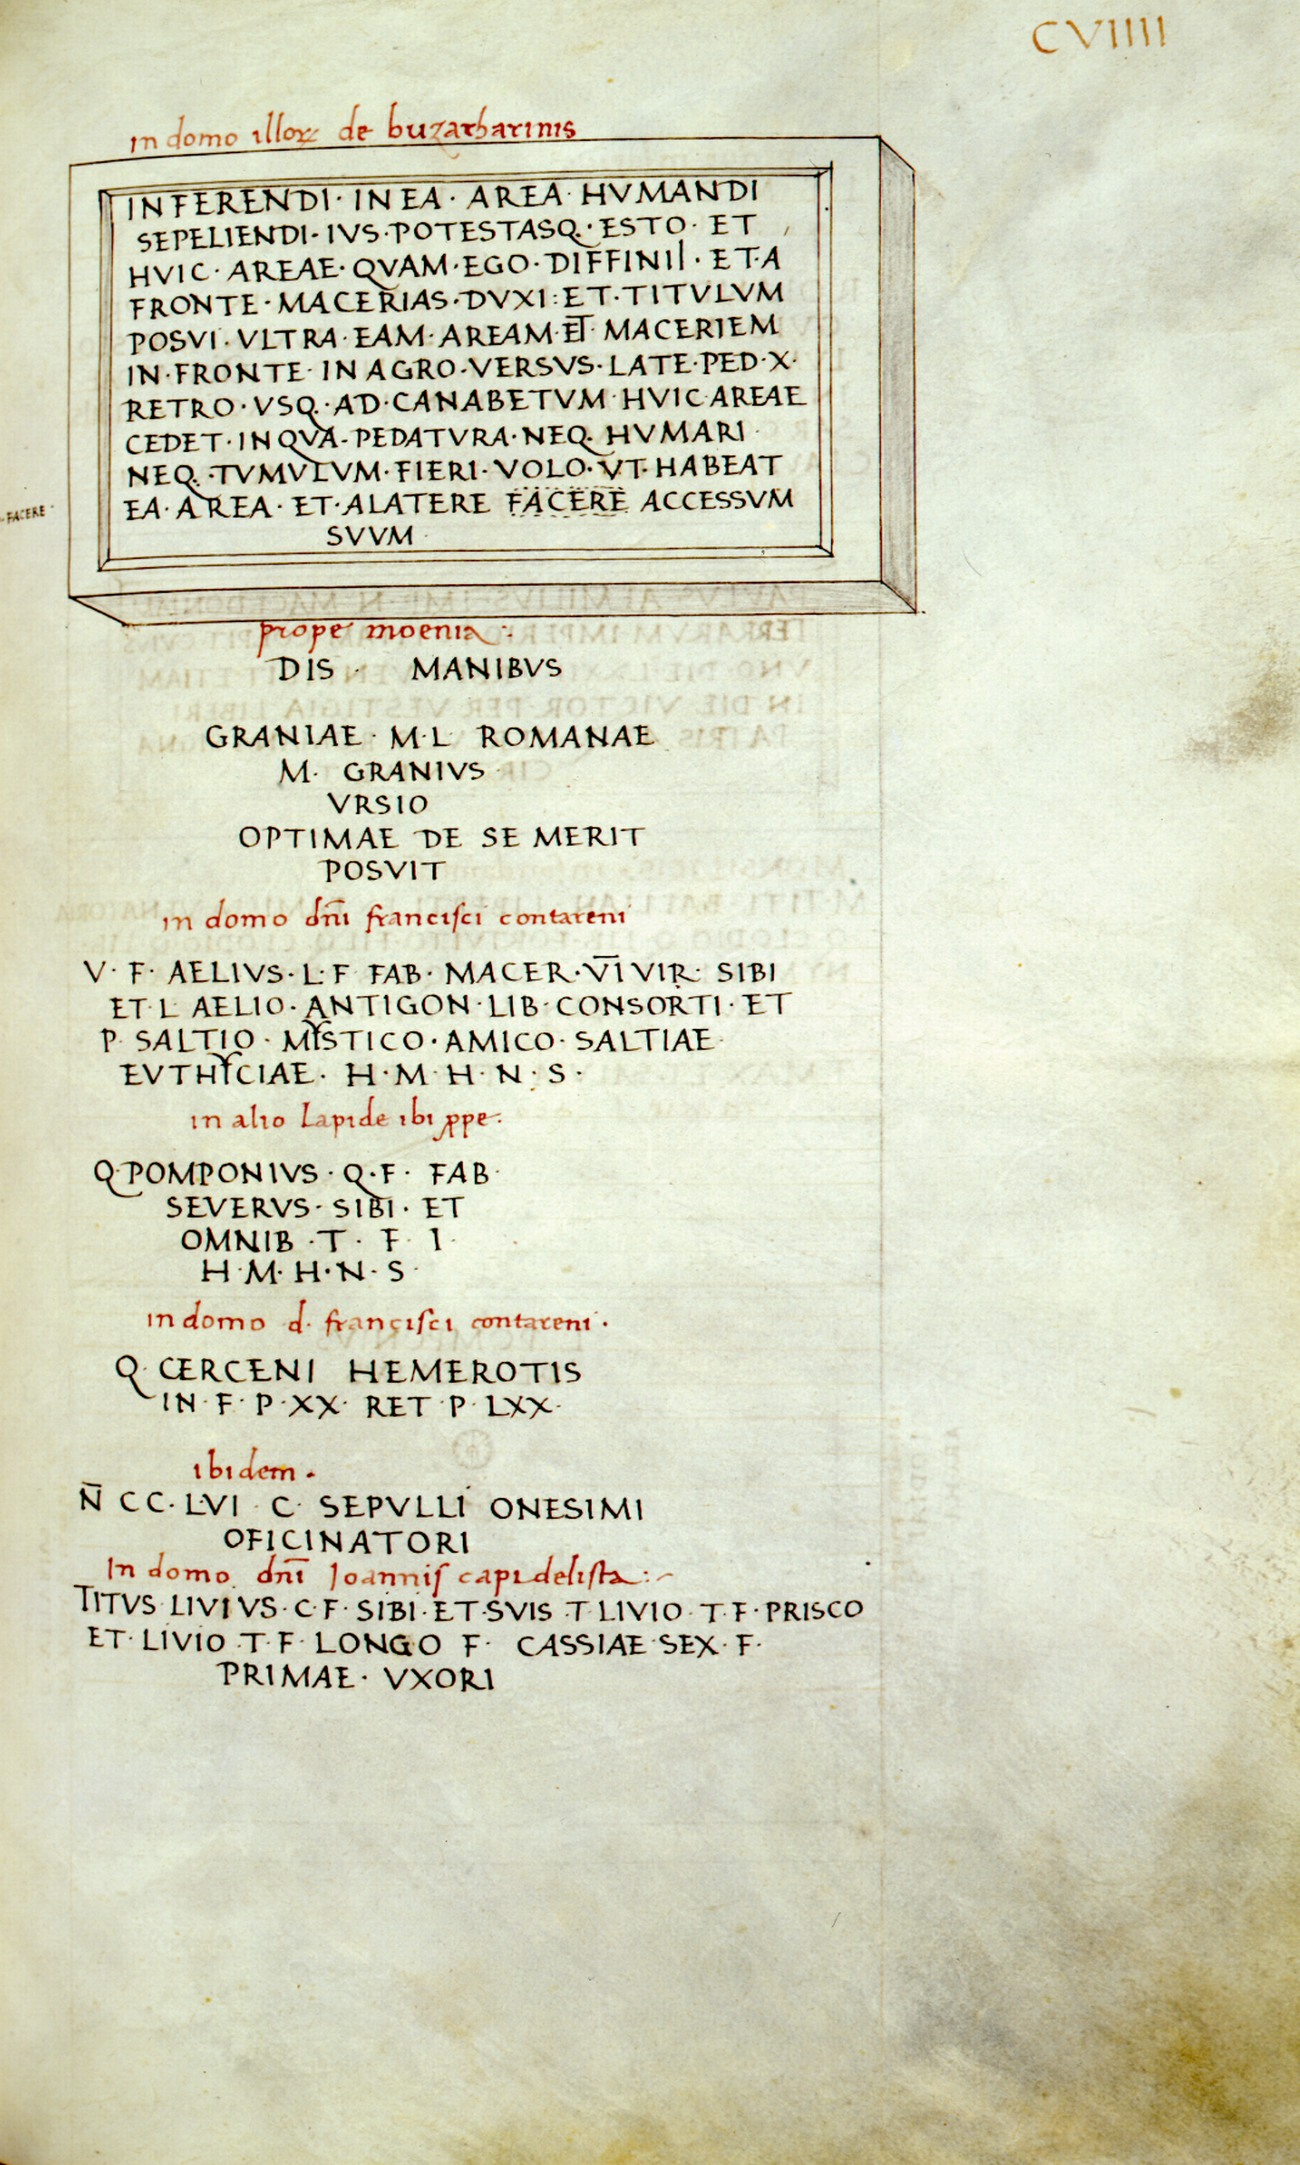 CVIIII
in domo illoꝝ de buzarharinis
INFERENDI · IN EA · AREA · HVMANDI
SEPELIENDI · IVS · POTESTASQ · ESTO · ET
HVIC · AREAE · QVAM · EGO · DIFFINII · ET · A
FRONTE · MACERIAS · DVXI : ET · TITVLVM
POSVI · VLTRA · EAM · AREAM · ET · MACERIEM
IN · FRONTE · IN AGRO · VERSVS · LATE · PED · X ·
RETRO · VSQ · AD · CANABETVM · HVIC · AREAE
CEDET · IN QVA · PEDATVRA · NEQ · HVMARI ·
NEQ · TVMVLVM · FIERI · VOLO · VT · HABEAT
EA · AREA · ET · ALATERE FACERE ACCESSVM
· FACERE ·
SVVM ·
prope moenia :·
DIS · MANIBVS
GRANIAE · M · L ROMANAE
M · GRANIVS
VRSIO
OPTIMAE DE SE MERIT
POSVIT
in domo dn̄i francisci contareni
V · F · AELIVS · L · F FAB · MACER · V̅I̅ VIR · SIBI
ET · L AELIO · ANTIGON · LIB · CONSORTI · ET
P · SALTIO · MYSTICO · AMICO · SALTIAE ·
EVTHYCIAE · H · M · H · N · S ·
in alio lapide ibi ꝓpe ·
Q · POMPONIVS · Q · F · FAB ·
SEVERVS · SIBI · ET
OMNIB · T · F · I ·
H · M · H · N · S ·
in domo d. francisci contareni ·
Q · CERCENI HEMEROTIS
IN · F · P · XX · RET · P · LXX ·
ibidem ·
N̄ CC · LVI · C · SEPVLLI ONESIMI
OFICINATORI
In domo dn̄i Joannis capidelista :~
TITVS LIVIVS · C · F · SIBI · ET · SVIS · T LIVIO · T · F · PRISCO
ET · LIVIO · T · F · LONGO F · CASSIAE SEX · F ·
PRIMAE · VXORI